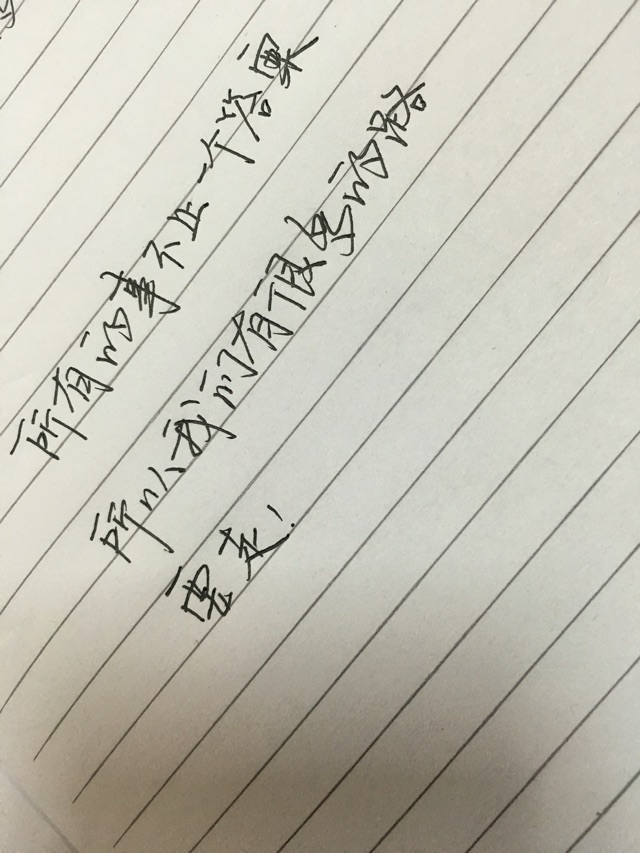 所有的事不止一个答案
所以我们有很多的路
要走!